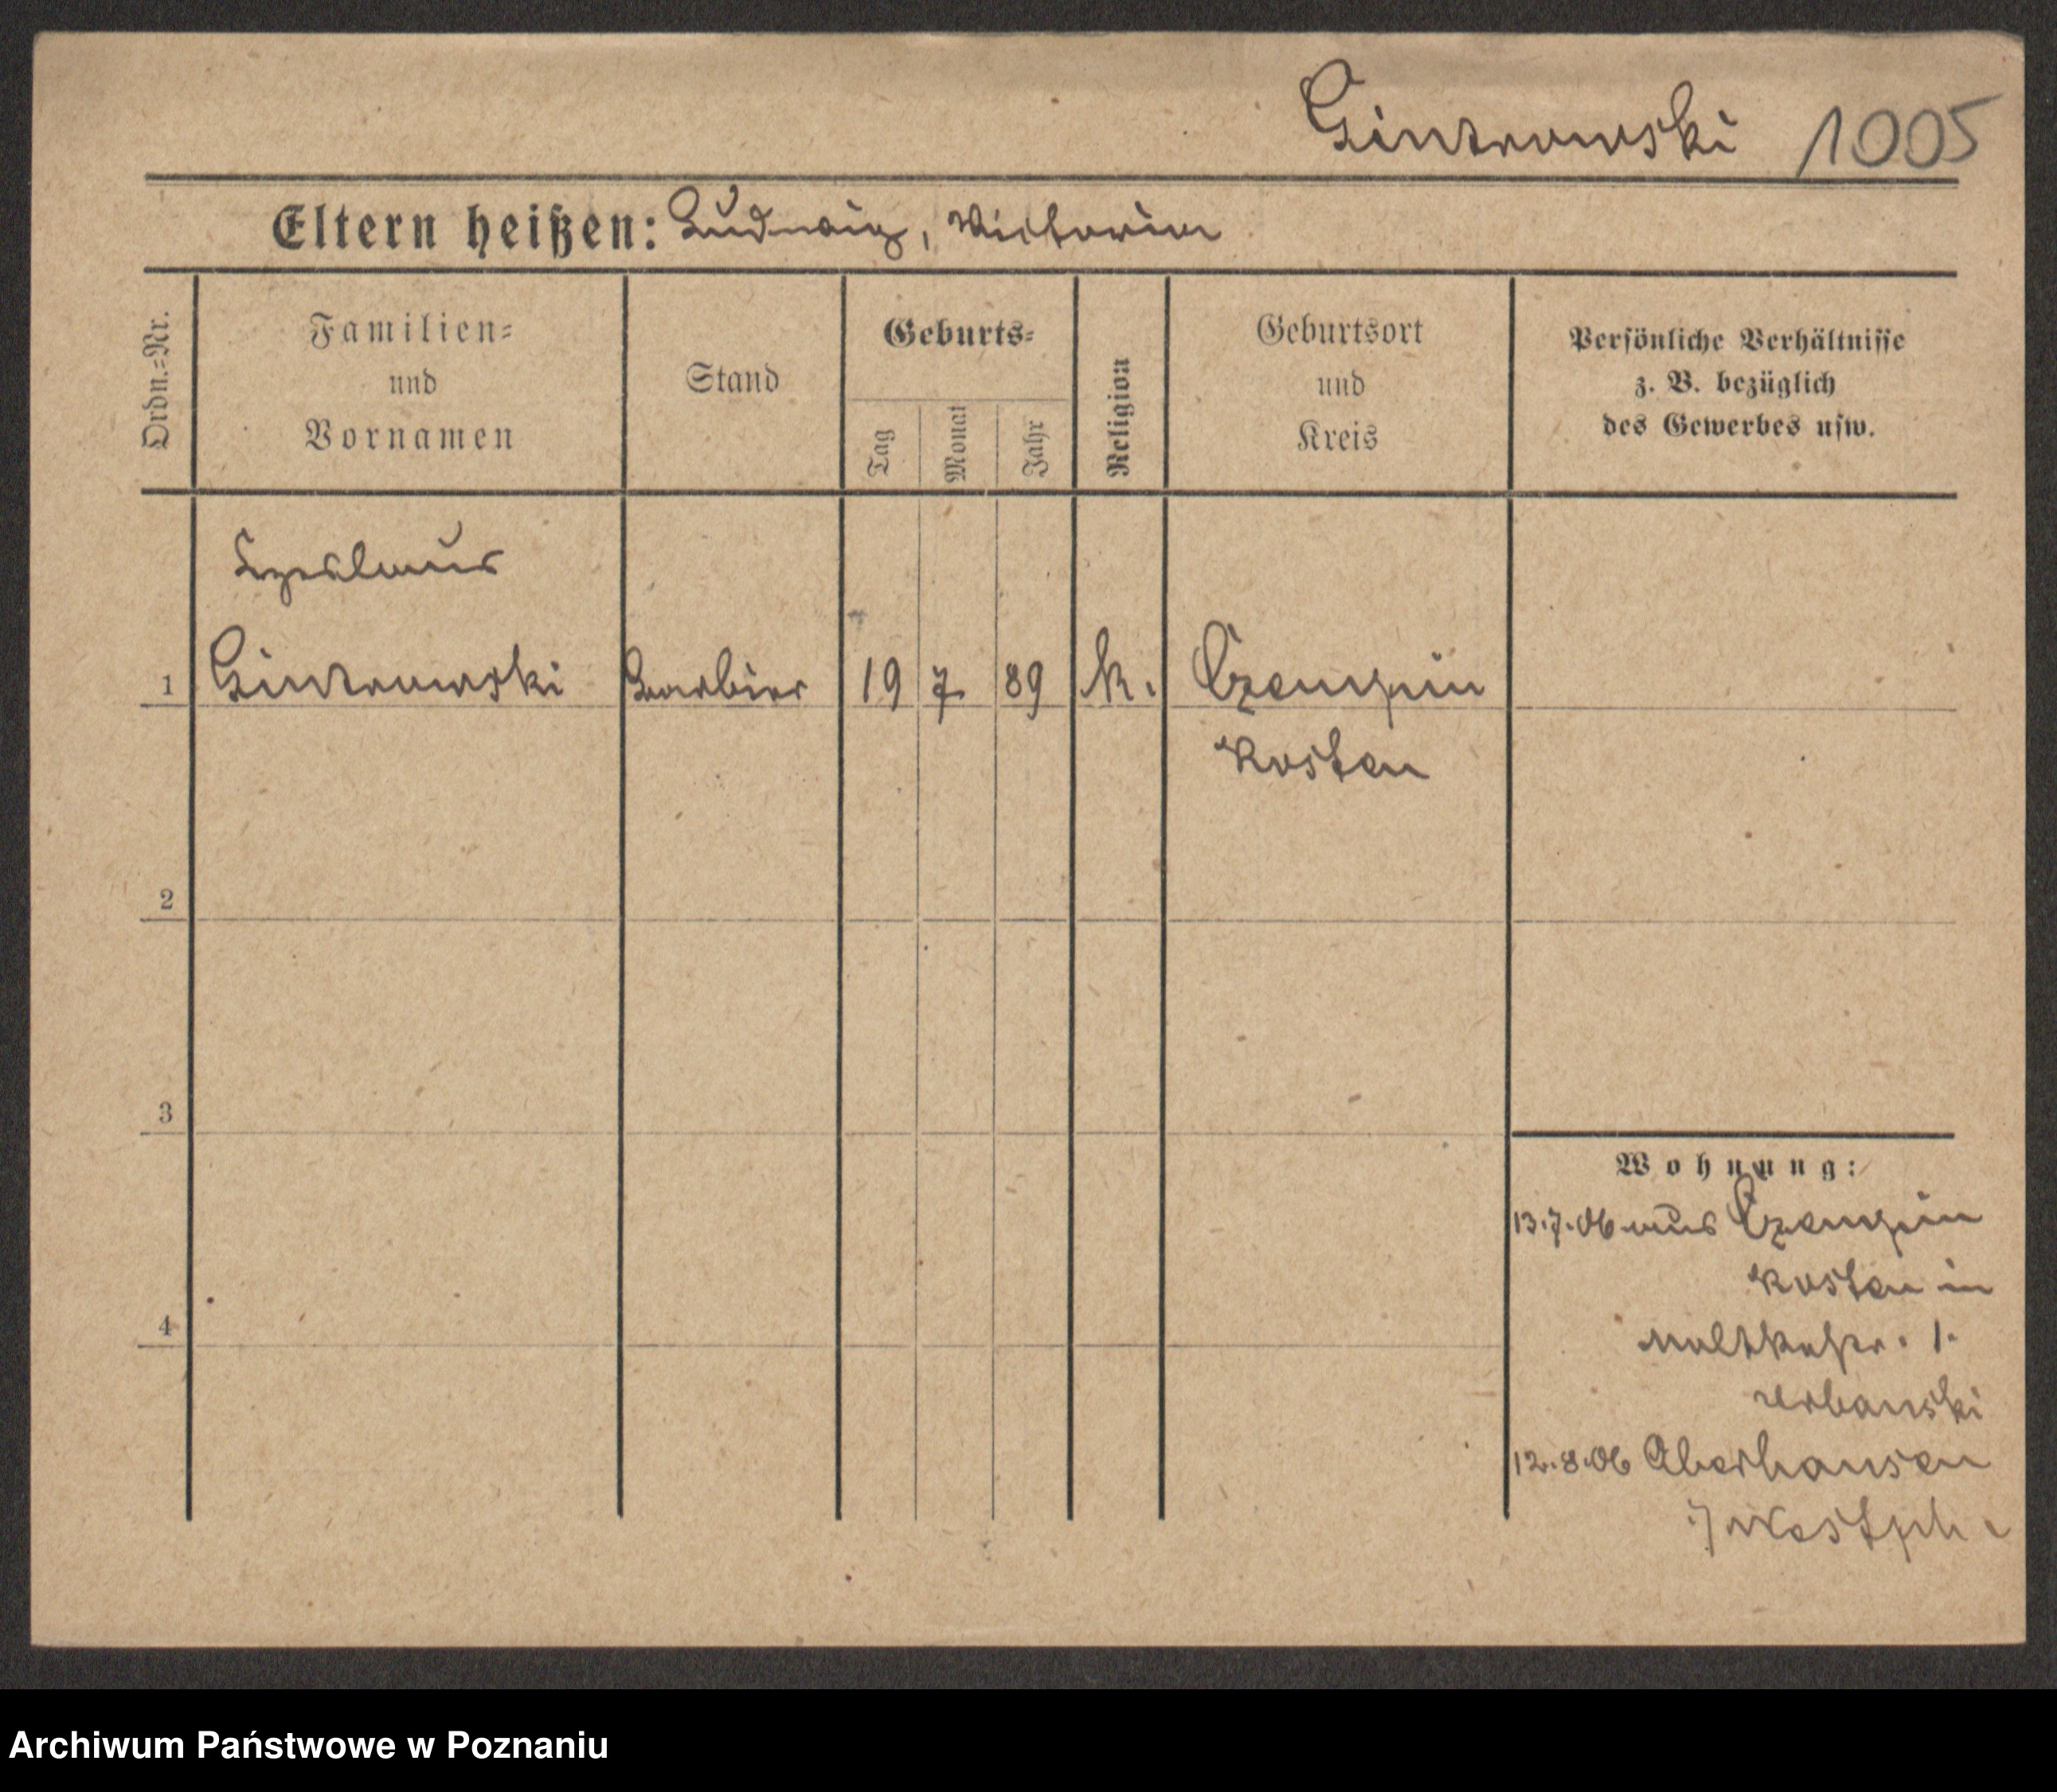 Gintrowski 1005
Eltern heißen: Ludwig, Victoria
Ordn.=Nr.
Familien=
und
Vornamen
Stand
Geburts=
Tag
Monat
Jahr
Religion
Geburtsort
und
Kreis
Persönliche Verhältnisse
z. B. bezüglich
des Gewerbes usw.
Czeslaus
1 Gintrowski Barbier 19 7 89 k. Czempin
Kosten
2
3
4
Wohnung:
13.7.06 aus Czempin
Kosten in
Moltkestr. 1.
Urbanski
12.8.06 Oberhausen
i/Westph
Archiwum Państwowe w Poznaniu